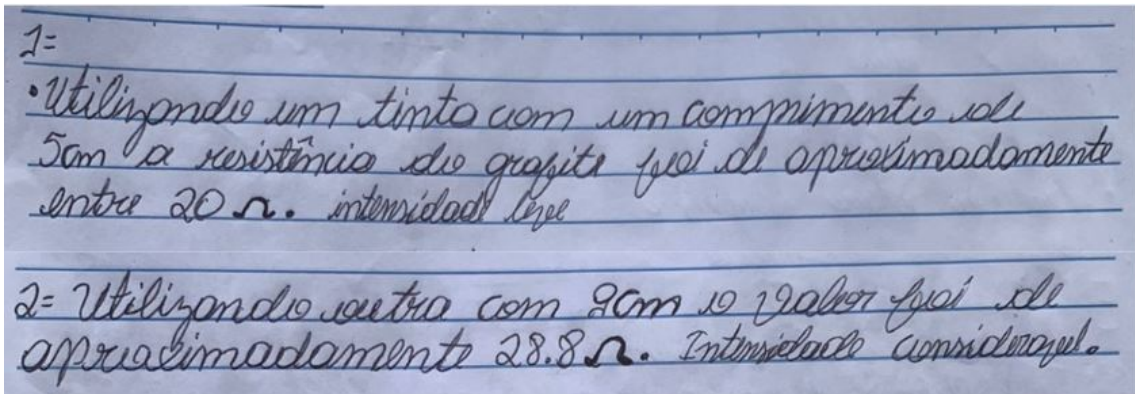 1=
•Utilizando um tinta com um comprimento de
5cm a resistência do grafite foi de aproximadamente
entre 20 Ω. intensidade leve
2= Utilizando outra com 9cm o valor foi de
aproximadamente 28.8 Ω. Intensidade considerável.